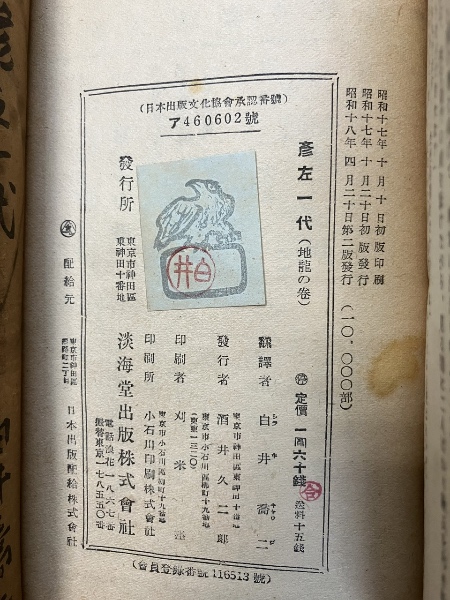 昭和十七年十月十日初版印刷
昭和十七年十月二十日初版發行
昭和十八年四月二十日第二版發行 (一〇,〇〇〇部)
(日本出版文化協會承認番號)
ア460602號
彥左一代 (地龍の卷)
停 定價 一圓六十錢 送料十五錢
令
飜譯者 白井喬二
シラ ヰ キヤウ ジ
東京市神田區東神田十番地
發行者 酒井久二郎
東京市小石川區
(東東一三二〇)
印刷者
東京市小石川區
印刷所 小石川印刷株式會社
白井
發行所
東京市神田區
東神田十番地
淡海堂出版株式會社
電話浪花一八六七番
振替東京一七八五五〇番
配給元
東京市神田區
淡路町二丁目
日本出版配給株式會社
(會員登錄番號116513號)